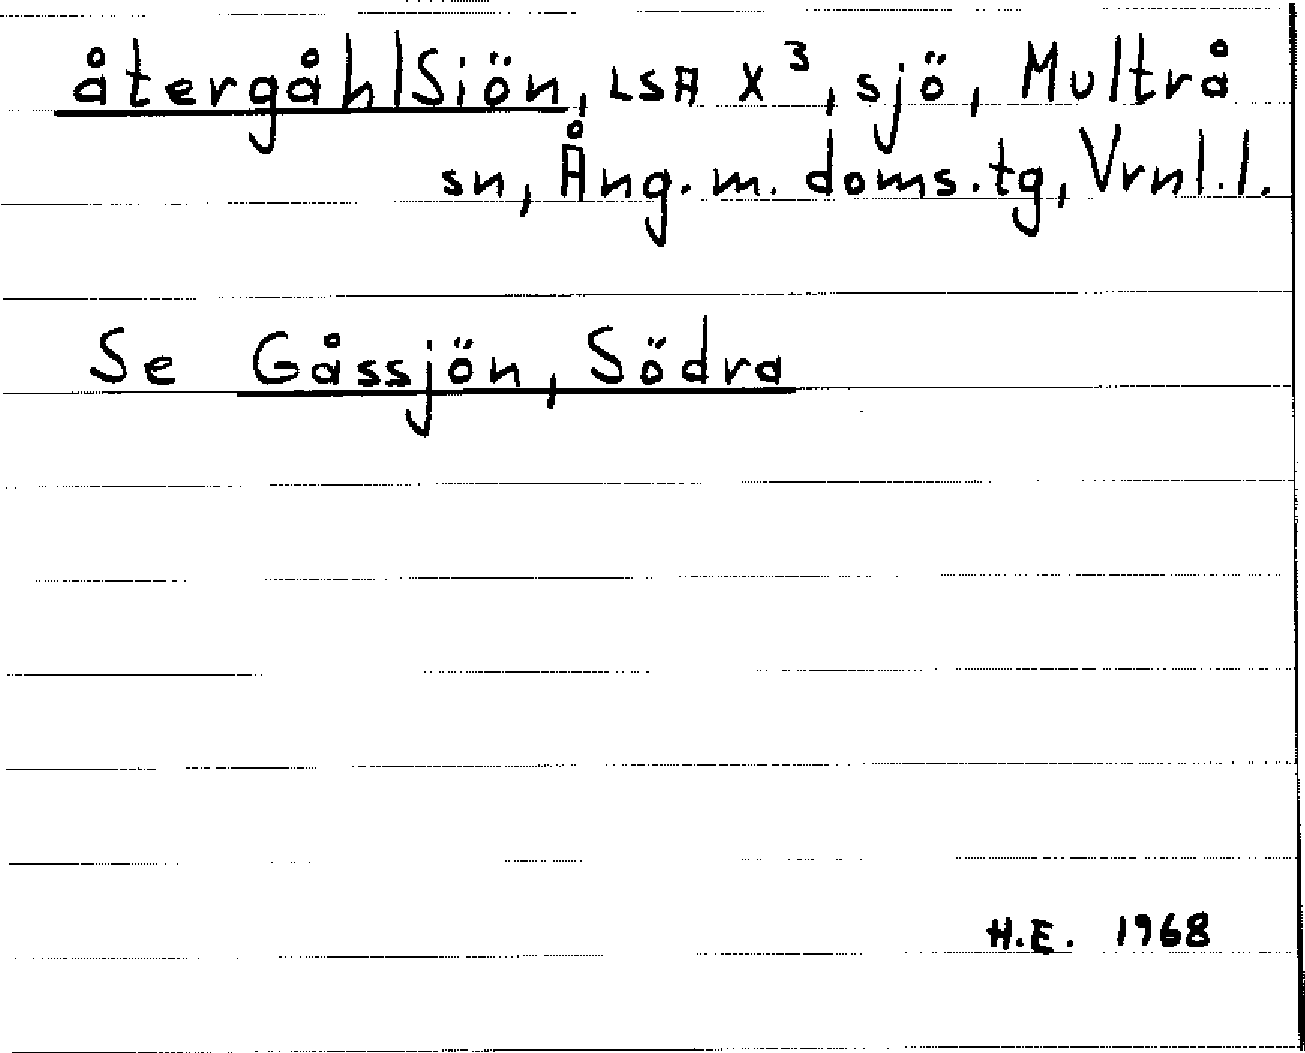 återgåhlSiön, LSA X³, sjö, Multrå
sn, Ång. m. doms. tg, Vrnl. l.
Se Gåssjön, Södra
H.E. 1968